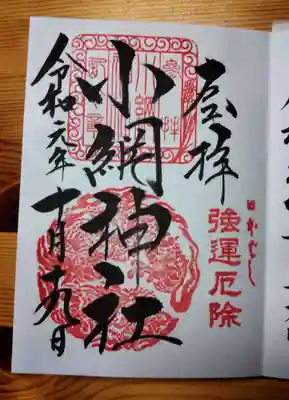 奉拝
強運厄除
小網神社
令和元年十月十九日